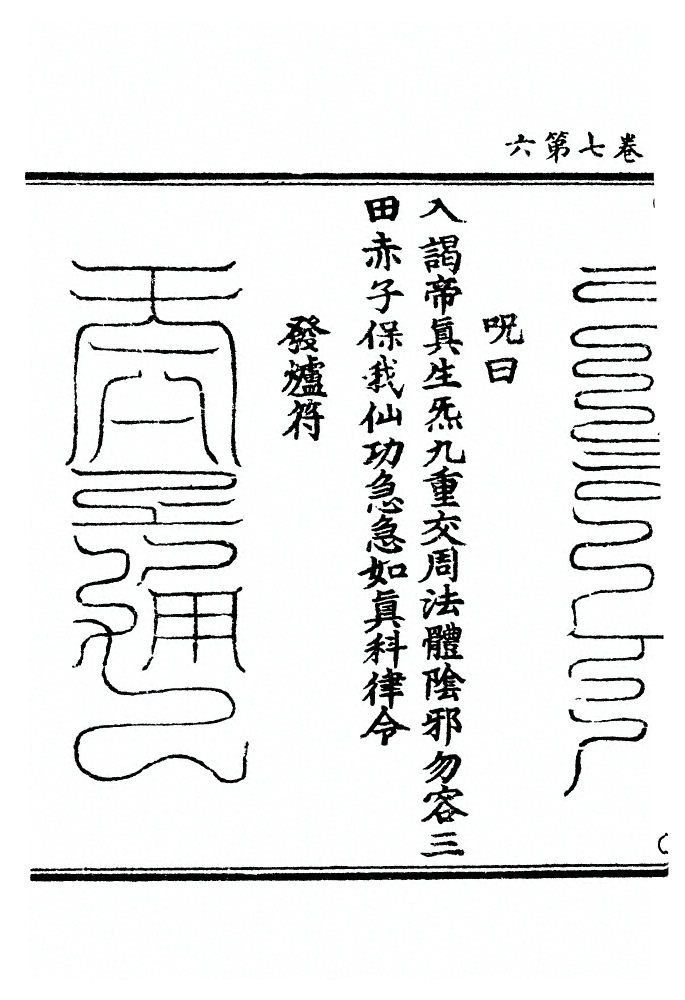 六第七卷
呪曰
入謁帝眞生炁九重交周法體陰邪勿容三
田赤子保我仙功急急如眞科律令
發爐符